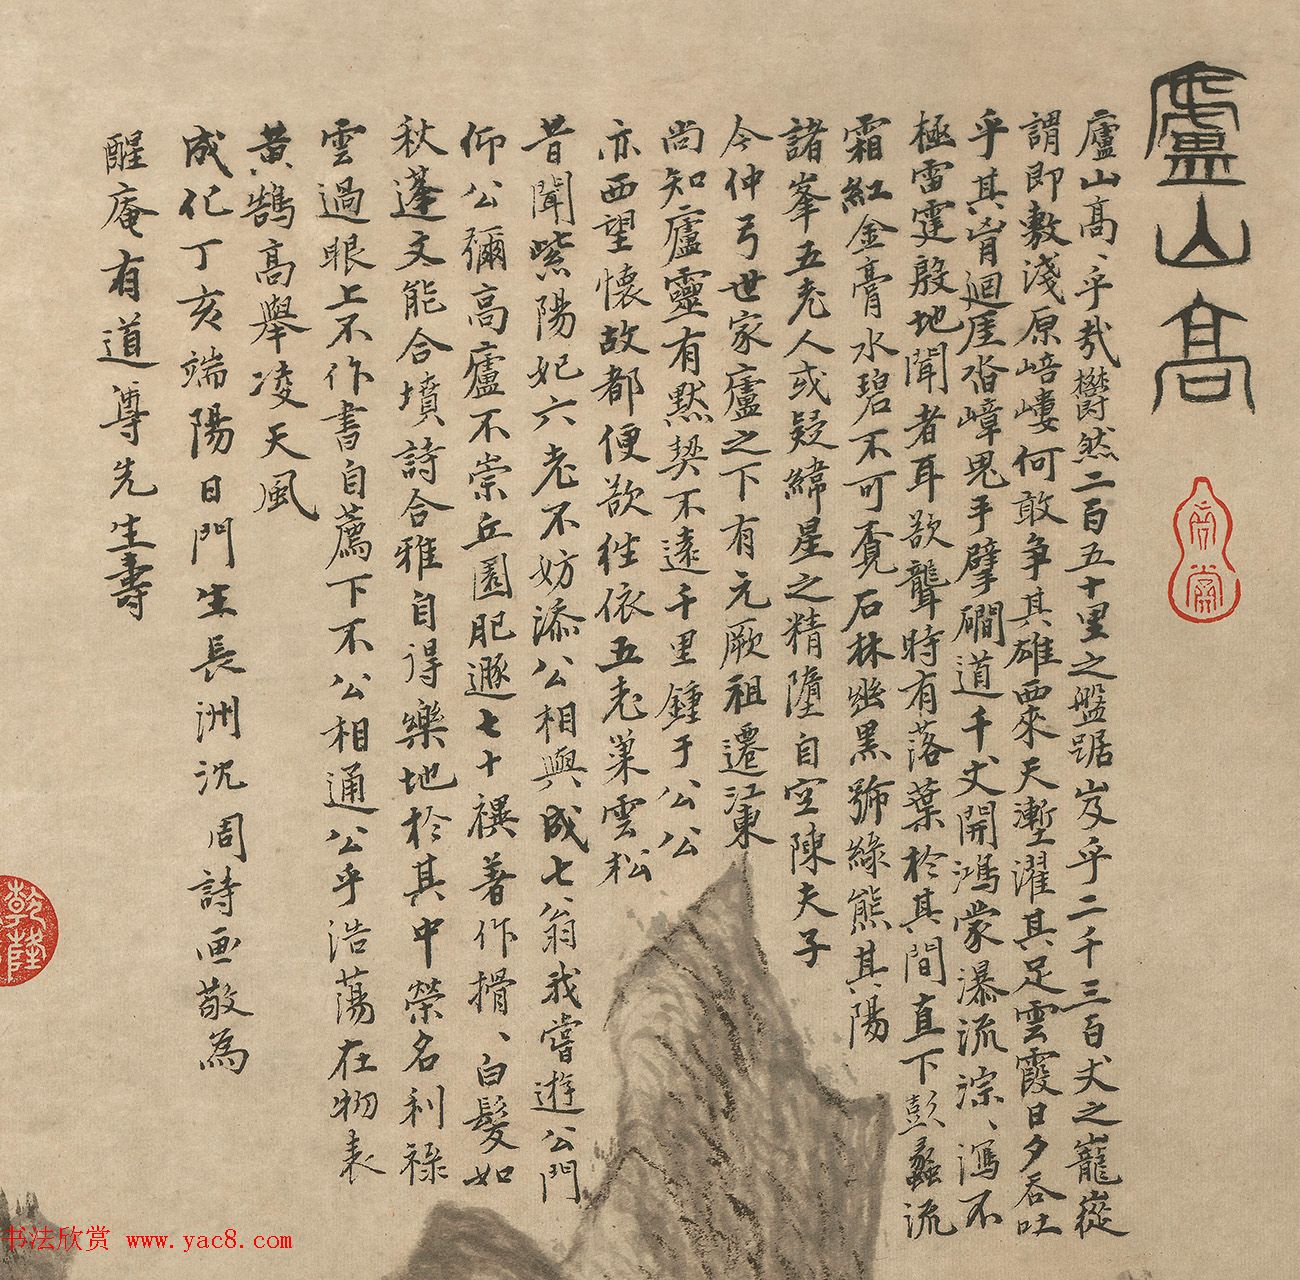 廬山高
廬山高、乎哉欝然二百五十里之盤踞岌乎二千三百丈之巃嵸
謂即敷淺原㟝嶁何敢争其雄西來天塹濯其足雲霞日夕吞吐
乎其胷迴厓沓嶂鬼手擘磵道千丈開鴻蒙瀑流淙、瀉不
極雷霆殷地聞者耳欲聾時有落葉於其間直下彭蠡流
霜紅金膏水碧不可覔石林幽黒號綠熊其陽
諸峯五老人或疑緯星之精隳自空陳夫子
今仲弓世家廬之下有元厥祖遷江東
尚知廬靈有默契不遠千里鍾于公公
亦西望懷故都便欲徃依五老巢雲松
昔聞紫陽妃六老不妨添公相與成七、翁我嘗遊公門
仰公彌高廬不崇丘園肥遯七十禩著作揹、白髮如
秋蓬文能合墳詩合雅自得樂地於其中榮名利祿
雲過眼上不作書自薦下不公相通公乎浩蕩在物表
黄鵠高舉凌天風
成化丁亥端陽日門生長洲沈周詩画敬為
醒庵有道尊先生壽
啇賞
乾隆
书法欣赏 www.yac8.com